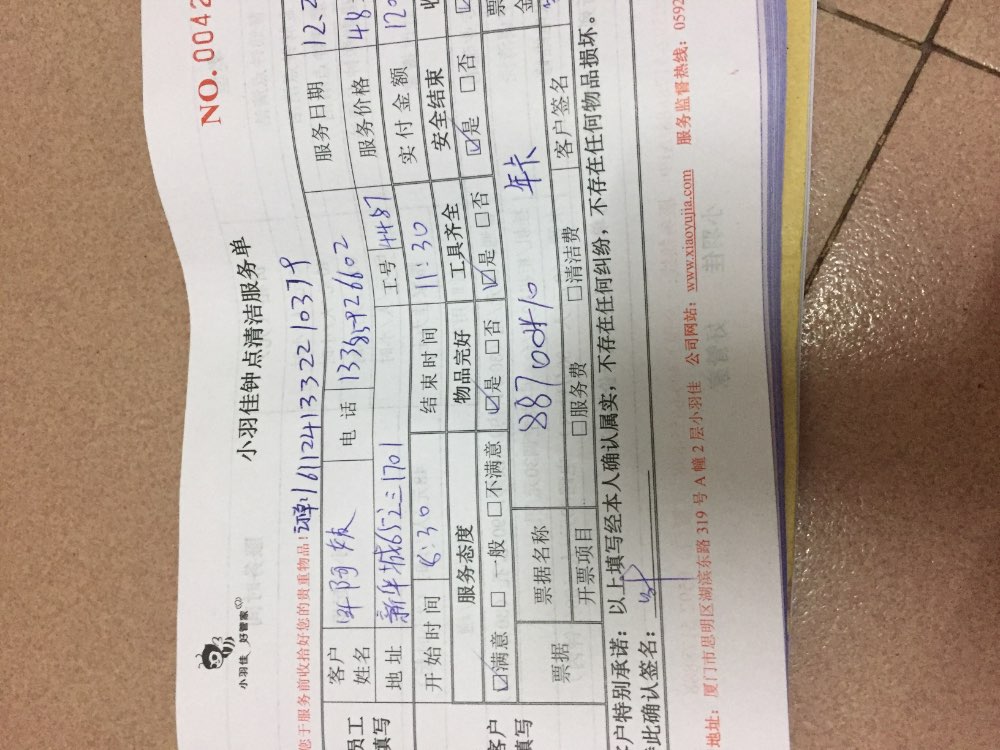 小羽佳 好管家
小羽佳钟点清洁服务单
NO.0042
您于服务前收拾好您的贵重物品!
161124133221037
员工
填写
客户
姓名
阿
电话
服务日期 12.2
地址 新华城65之三1701
工号 4487
服务价格 48
开始时间 :30
结束时间 11:30
实付金额 120
客户
填写
服务态度
物品完好
工具齐全
安全结束
☑满意 □一般 □不满意
☑是 □否
☑是 □否
☑是 □否
票据
票据名称
8870 年卡
开票项目
□服务费 □清洁费
客户签名
客户特别承诺:以上填写经本人确认属实,不存在任何纠纷,不存在任何物品损坏。
此确认签名:
地址:厦门市思明区湖滨东路319号A幢2层小羽佳 公司网站:www.xiaoyujia.com 服务监督热线:0592